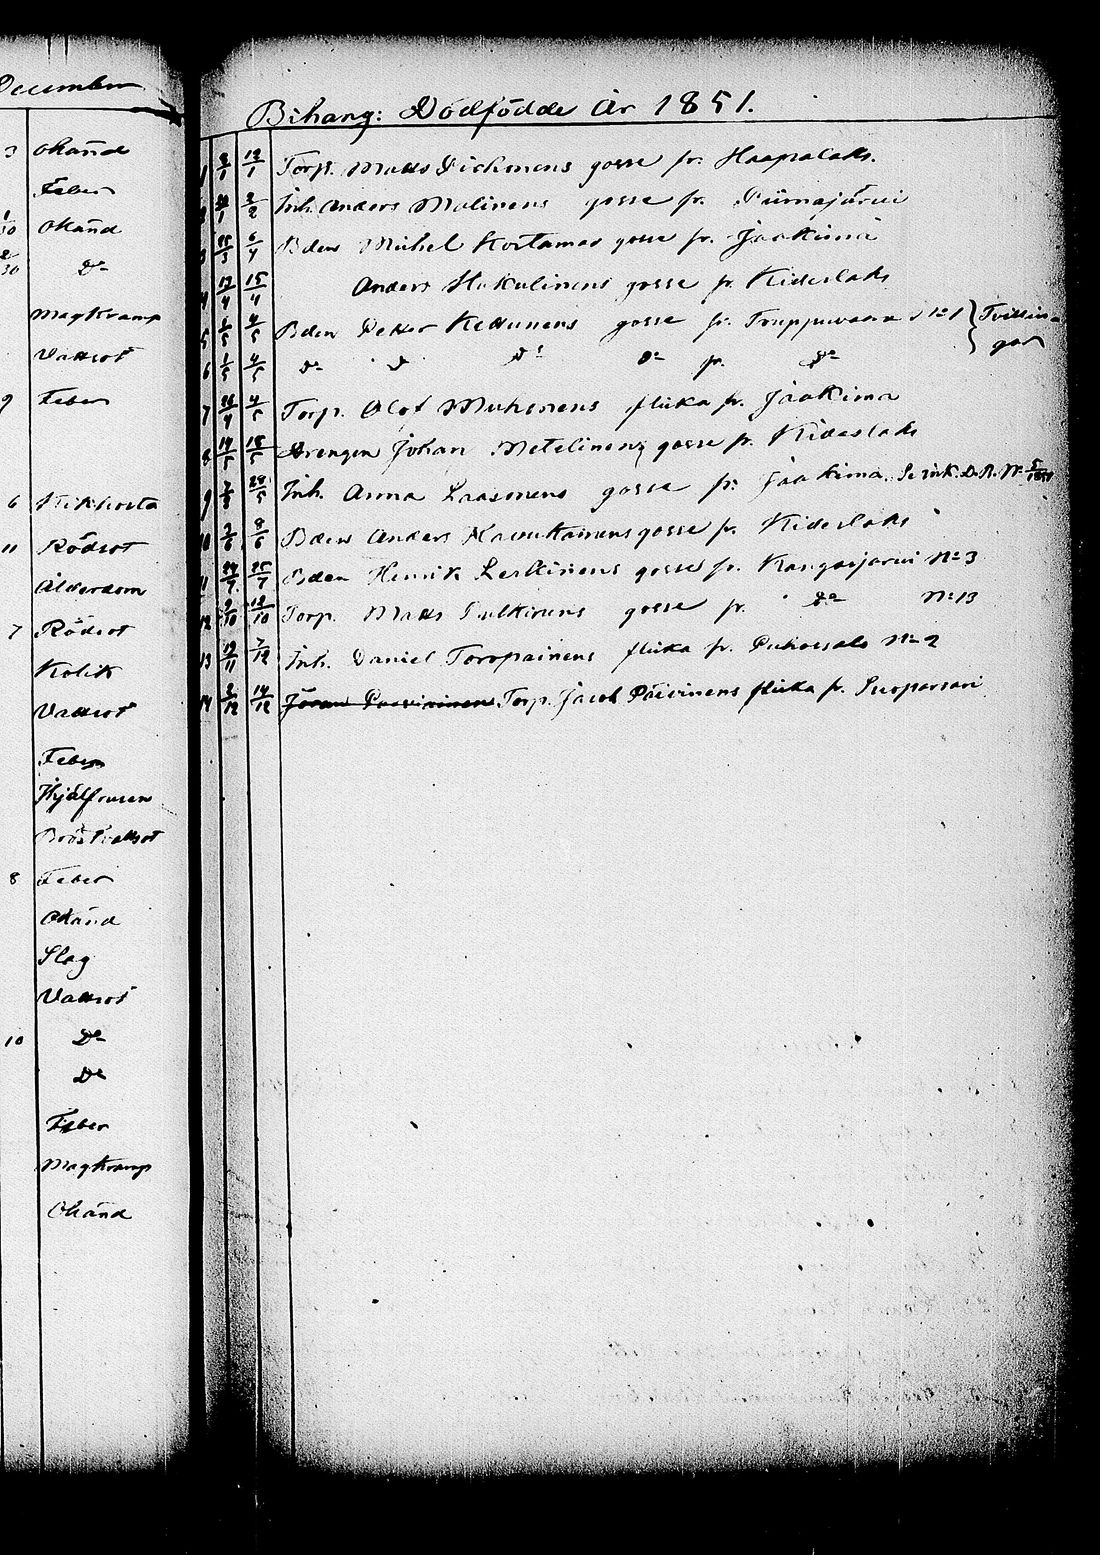 December
3 Okänd
Feber
1/30 Okänd
2/30 Do
Magkramp
Vattsot
9 Feber
6 Kikhosta
11 Rödsot
Ålderdom
7 Rödsot
Kolik
Vattsot
Feber
Ihjälfrusen
Bröst Vattsot
8 Feber
Okänd
Slag
Vattsot
10 Do
Do
Feber
Magkramp
Okänd
Bihang: Dödfödde År 1851.
1 12/1 Torp. Matts gosse fr. Haapalaks.
2 2/2 Inh. Anders Malinens gosse fr. Piimajärvi
3 6/4 Bden Michel Kostamos gosse fr. Jaakima
4 13/4 15/4 Anders Hukulinens gosse fr. Kideslaks
5 1/5 4/5 Bden Petter Kettunens gosse fr. Truppuvaara No 1 } Tvillin-
6 1/5 4/5 Do Do Do Do fr. Do gar
7 26/4 4/5 Torp. Olof Muhonens flicka fr. Jaakima
8 14/5 18/5 Drengen Johan Metelinens gosse fr. Kideslaks
9 25/5 Inh. Anna Laasonens gosse fr. Jaakima. Se ink. D. A. No 5/1851
10 3/6 8/6 Bden Anders Kaukainens gosse fr. Kideslaks
11 24/7 25/7 Bden Henrik Leskinens gosse fr. Kangasjärvi No 3
12 9/10 12/10 Torp. Matts Pulkinens gosse fr. Do No 13
13 19/11 7/12 Inh. Daniel Toropainens flicka fr. Puhossalo No 2
14 2/12 14/12 Jöran Torp. Jacob Päivinens flicka fr. Suoparsari